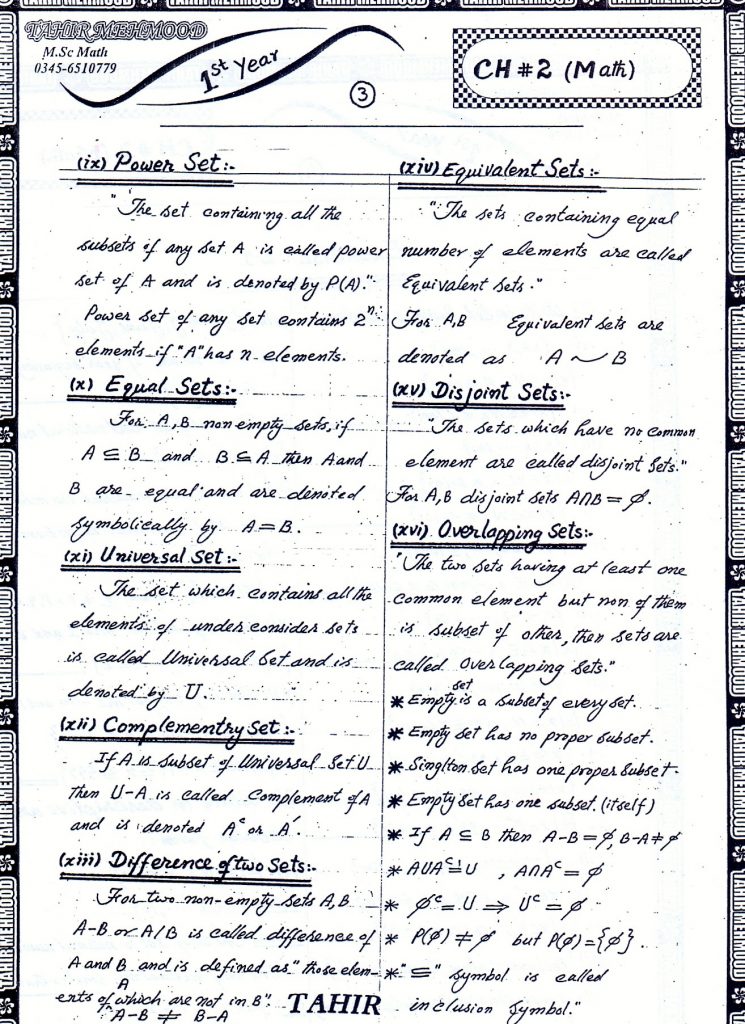 TAHIR MEHMOOD
M.Sc Math
0345-6510779
1st Year
3
CH # 2 (Math)
(ix) Power Set:-
"The set containing all the
subsets of any set A is called power
set of A and is denoted by P(A)."
Power set of any set contains 2ⁿ
elements if "A" has n elements.
(x) Equal Sets:-
For A, B non empty sets, if
A ⊆ B and B ⊆ A then A and
B are equal and are denoted
symbolically by A = B.
(xi) Universal Set:-
The set which contains all the
elements of under consider sets
is called Universal Set and is
denoted by U.
(xii) Complementry Set:-
If A is subset of Universal Set U
then U-A is called Complement of A
and is denoted Aᶜ or A'.
(xiii) Difference of two Sets:-
For two non-empty sets A, B
A-B or A/B is called difference of
A and B and is defined as "those elem-
ents of A which are not in B".
A-B ≠ B-A
(xiv) Equivalent Sets:-
"The sets containing equal
number of elements are called
Equivalent sets."
For A,B Equivalent sets are
denoted as A ~ B
(xv) Disjoint Sets:-
"The sets which have no common
element are called disjoint sets."
For A,B disjoint sets A∩B = ϕ.
(xvi) Overlapping Sets:-
"The two sets having at least one
common element but non of them
is subset of other, then sets are
called overlapping sets."
* Empty set is a subset of every set.
* Empty set has no proper subset.
* Singlton set has one proper subset.
* Empty set has one subset. (itself)
* If A ⊆ B then A-B = ϕ, B-A ≠ ϕ
* A∪Aᶜ = U , A∩Aᶜ = ϕ
* ϕᶜ = U ⇒ Uᶜ = ϕ
* P(ϕ) ≠ ϕ but P(ϕ) = {ϕ}.
* "⊆" symbol is called
inclusion symbol."
TAHIR